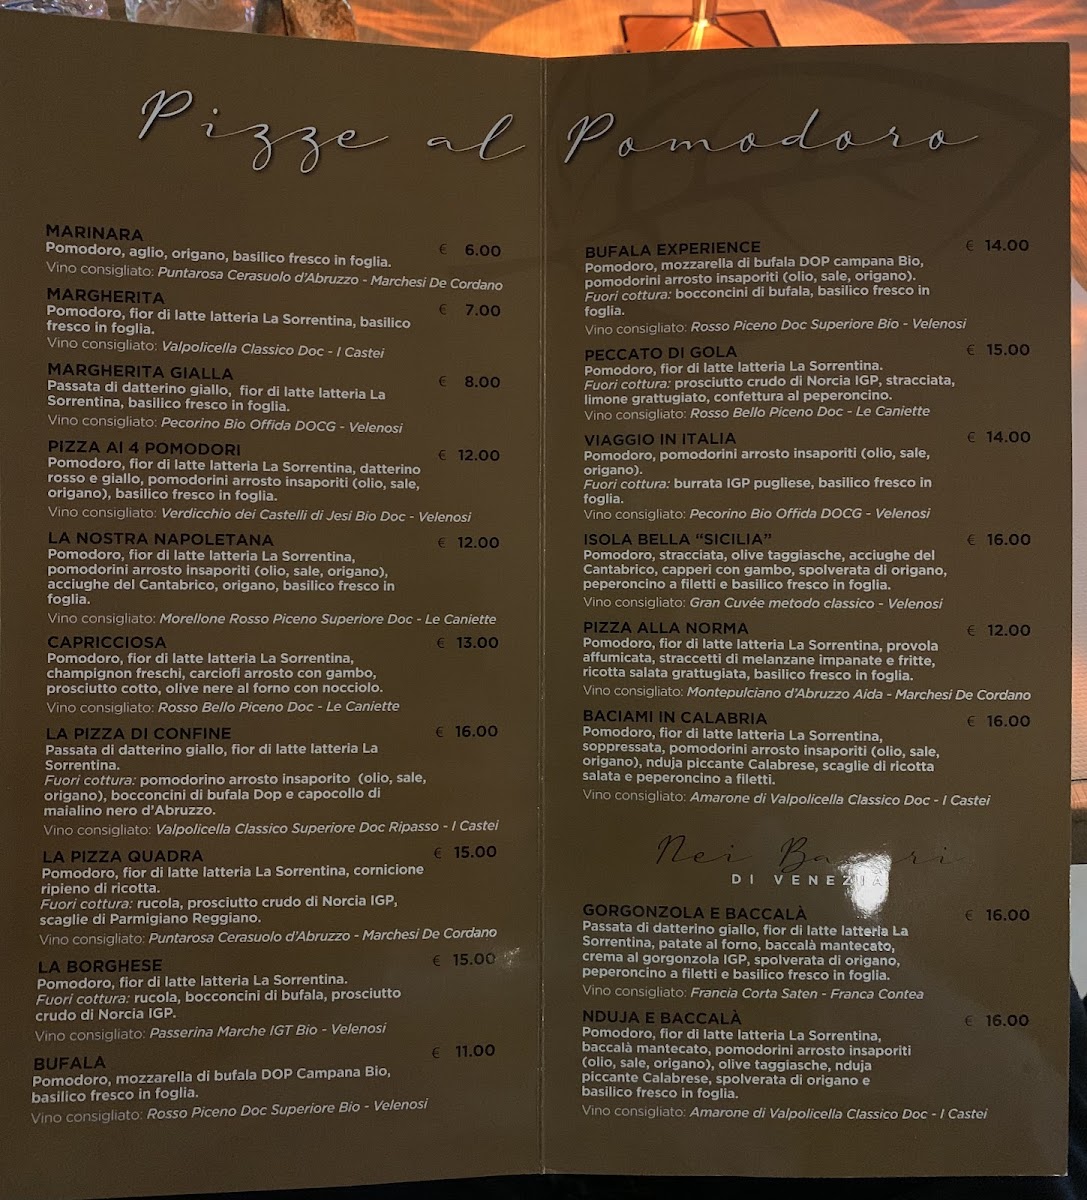 Pizze al Pomodoro
MARINARA
€ 6.00
Pomodoro, aglio, origano, basilico fresco in foglia.
Vino consigliato: Puntarosa Cerasuolo d'Abruzzo - Marchesi De Cordano
MARGHERITA
€ 7.00
Pomodoro, fior di latte latteria La Sorrentina, basilico
fresco in foglia.
Vino consigliato: Valpolicella Classico Doc - I Castei
MARGHERITA GIALLA
€ 8.00
Passata di datterino giallo, fior di latte latteria La
Sorrentina, basilico fresco in foglia.
Vino consigliato: Pecorino Bio Offida DOCG - Velenosi
PIZZA AI 4 POMODORI
€ 12.00
Pomodoro, fior di latte latteria La Sorrentina, datterino
rosso e giallo, pomodorini arrosto insaporiti (olio, sale,
origano), basilico fresco in foglia.
Vino consigliato: Verdicchio dei Castelli di Jesi Bio Doc - Velenosi
LA NOSTRA NAPOLETANA
€ 12.00
Pomodoro, fior di latte latteria La Sorrentina,
pomodorini arrosto insaporiti (olio, sale, origano),
acciughe del Cantabrico, origano, basilico fresco in
foglia.
Vino consigliato: Morellone Rosso Piceno Superiore Doc - Le Caniette
CAPRICCIOSA
€ 13.00
Pomodoro, fior di latte latteria La Sorrentina,
champignon freschi, carciofi arrosto con gambo,
prosciutto cotto, olive nere al forno con nocciolo.
Vino consigliato: Rosso Bello Piceno Doc - Le Caniette
LA PIZZA DI CONFINE
€ 16.00
Passata di datterino giallo, fior di latte latteria La
Sorrentina.
Fuori cottura: pomodorino arrosto insaporito (olio, sale,
origano), bocconcini di bufala Dop e capocollo di
maialino nero d'Abruzzo.
Vino consigliato: Valpolicella Classico Superiore Doc Ripasso - I Castei
LA PIZZA QUADRA
€ 15.00
Pomodoro, fior di latte latteria La Sorrentina, cornicione
ripieno di ricotta.
Fuori cottura: rucola, prosciutto crudo di Norcia IGP,
scaglie di Parmigiano Reggiano.
Vino consigliato: Puntarosa Cerasuolo d'Abruzzo - Marchesi De Cordano
LA BORGHESE
€ 15.00
Pomodoro, fior di latte latteria La Sorrentina.
Fuori cottura: rucola, bocconcini di bufala, prosciutto
crudo di Norcia IGP.
Vino consigliato: Passerina Marche IGT Bio - Velenosi
BUFALA
€ 11.00
Pomodoro, mozzarella di bufala DOP Campana Bio,
basilico fresco in foglia.
Vino consigliato: Rosso Piceno Doc Superiore Bio - Velenosi
BUFALA EXPERIENCE
€ 14.00
Pomodoro, mozzarella di bufala DOP campana Bio,
pomodorini arrosto insaporiti (olio, sale, origano).
Fuori cottura: bocconcini di bufala, basilico fresco in
foglia.
Vino consigliato: Rosso Piceno Doc Superiore Bio - Velenosi
PECCATO DI GOLA
€ 15.00
Pomodoro, fior di latte latteria La Sorrentina.
Fuori cottura: prosciutto crudo di Norcia IGP, stracciata,
limone grattugiato, confettura al peperoncino.
Vino consigliato: Rosso Bello Piceno Doc - Le Caniette
VIAGGIO IN ITALIA
€ 14.00
Pomodoro, pomodorini arrosto insaporiti (olio, sale,
origano).
Fuori cottura: burrata IGP pugliese, basilico fresco in
foglia.
Vino consigliato: Pecorino Bio Offida DOCG - Velenosi
ISOLA BELLA "SICILIA"
€ 16.00
Pomodoro, stracciata, olive taggiasche, acciughe del
Cantabrico, capperi con gambo, spolverata di origano,
peperoncino a filetti e basilico fresco in foglia.
Vino consigliato: Gran Cuvée metodo classico - Velenosi
PIZZA ALLA NORMA
€ 12.00
Pomodoro, fior di latte latteria La Sorrentina, provola
affumicata, straccetti di melanzane impanate e fritte,
ricotta salata grattugiata, basilico fresco in foglia.
Vino consigliato: Montepulciano d'Abruzzo Aida - Marchesi De Cordano
BACIAMI IN CALABRIA
€ 16.00
Pomodoro, fior di latte latteria La Sorrentina,
soppressata, pomodorini arrosto insaporiti (olio, sale,
origano), nduja piccante Calabrese, scaglie di ricotta
salata e peperoncino a filetti.
Vino consigliato: Amarone di Valpolicella Classico Doc - I Castei
Nei
DI VENEZIA
GORGONZOLA E BACCALÀ
€ 16.00
Passata di datterino giallo, fior di latte latteria La
Sorrentina, patate al forno, baccalà mantecato,
crema al gorgonzola IGP, spolverata di origano,
peperoncino a filetti e basilico fresco in foglia.
Vino consigliato: Francia Corta Saten - Franca Contea
NDUJA E BACCALÀ
€ 16.00
Pomodoro, fior di latte latteria La Sorrentina,
baccalà mantecato, pomodorini arrosto insaporiti
(olio, sale, origano), olive taggiasche, nduja
piccante Calabrese, spolverata di origano e
basilico fresco in foglia.
Vino consigliato: Amarone di Valpolicella Classico Doc - I Castei